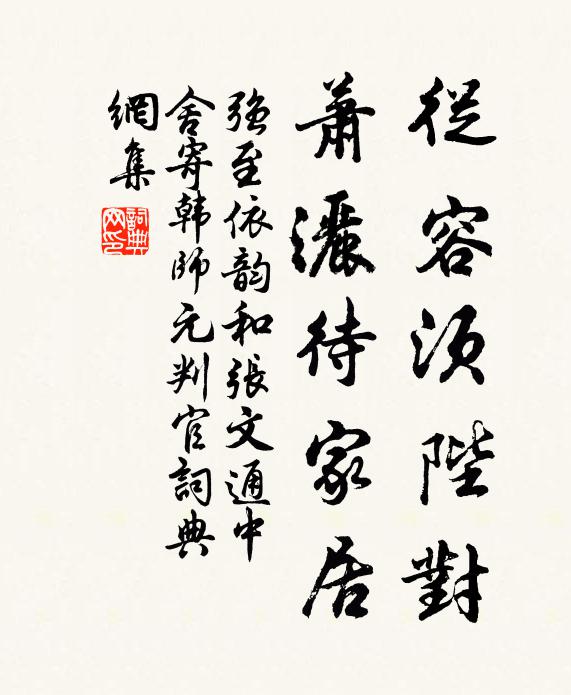 從容須陛對
蕭灑待家居
強至依韵和張文通中
舍寄韩師元判官詞典
網集
詞典网印